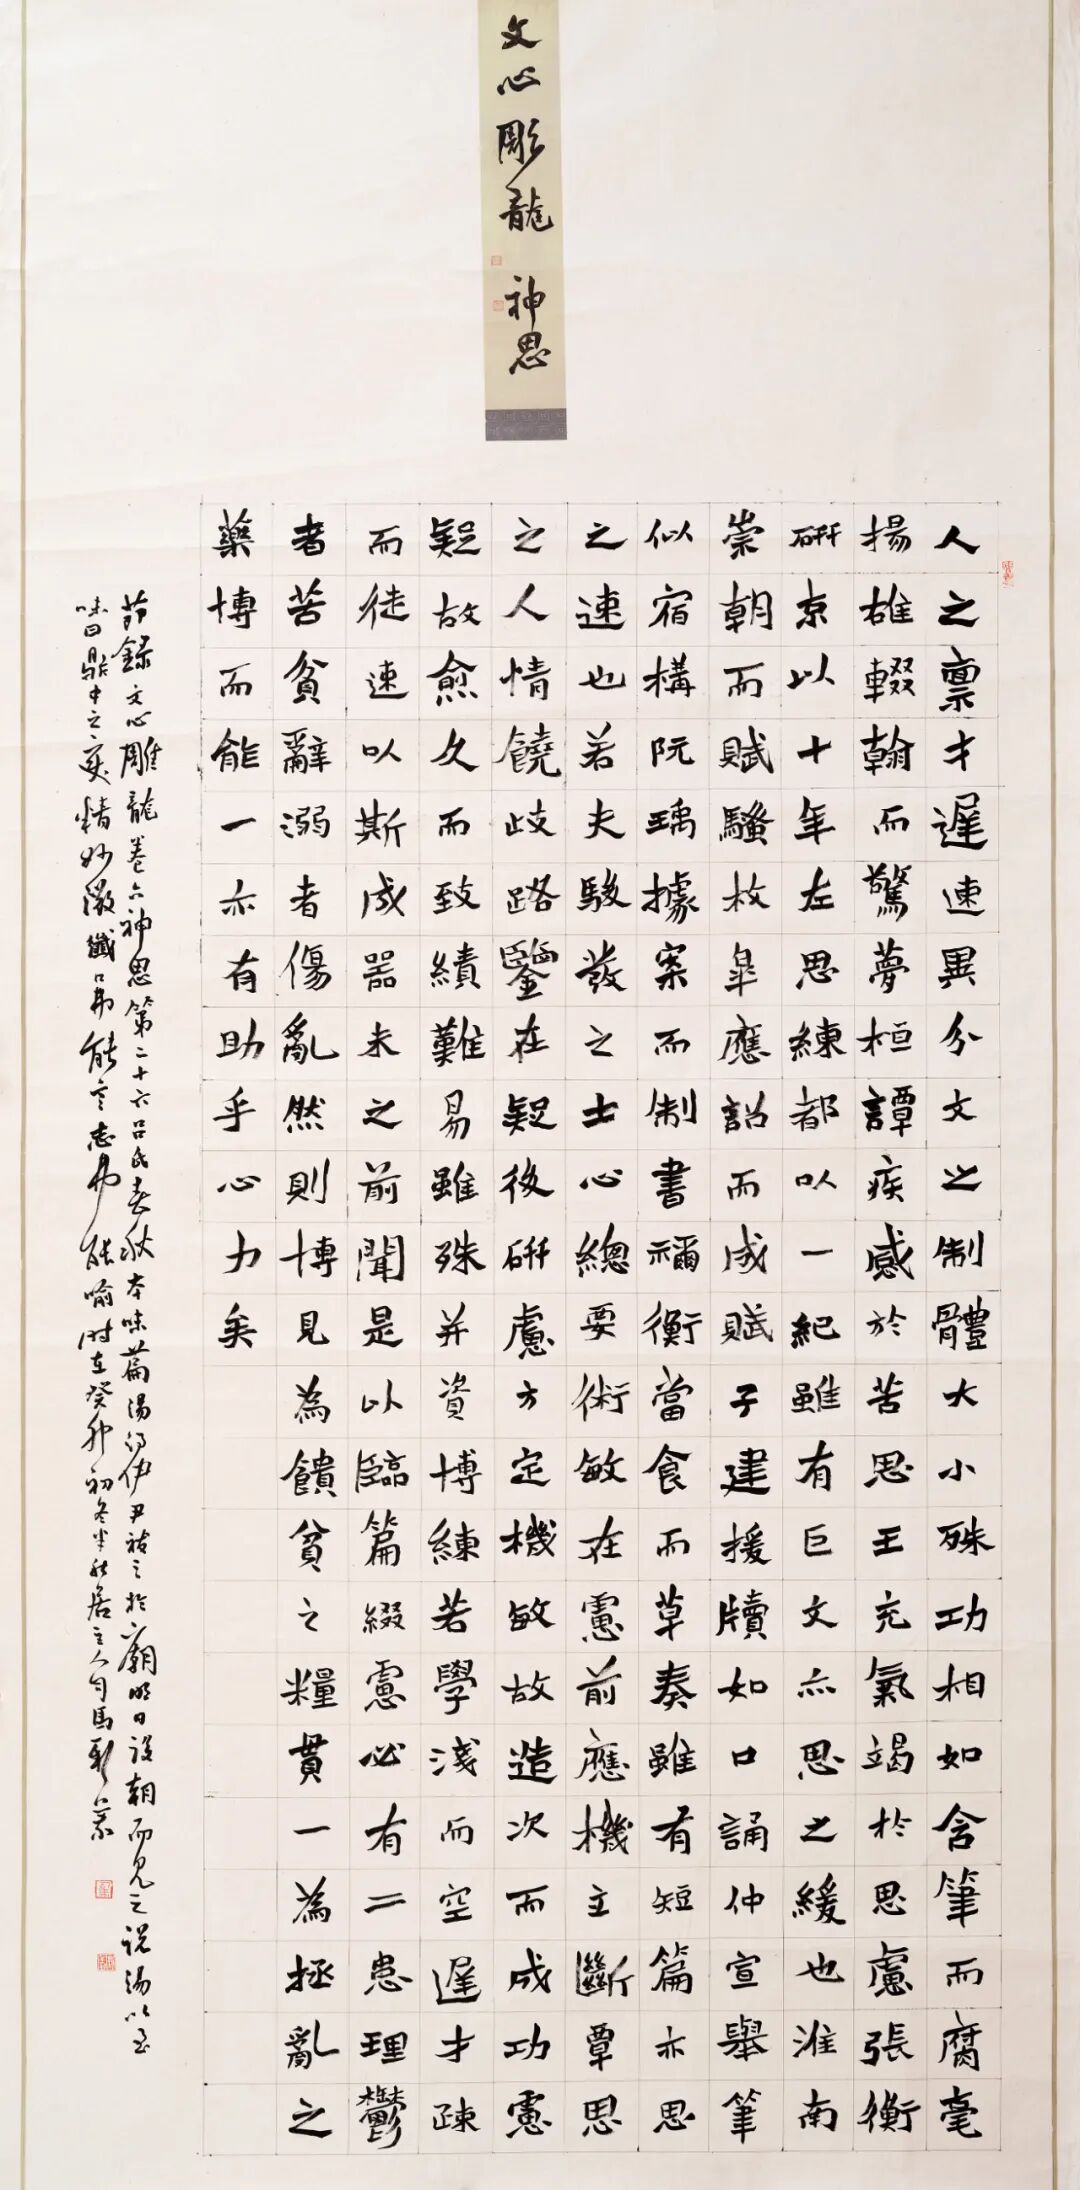 文心彫龍 神思
人之禀才遲速異分文之制體大小殊功相如含筆而腐毫
揚雄輟翰而驚夢桓譚疾感於苦思王充氣竭於思慮張衡
研京以十年左思練都以一紀雖有巨文亦思之緩也淮南
崇朝而賦騷枚皋應詔而成賦子建援牘如口誦仲宣舉筆
似宿構阮瑀據案而制書禰衡當食而草奏雖有短篇亦思
之速也若夫駿發之士心總要術敏在慮前應機立斷覃思
之人情饒歧路鑒在疑後研慮方定機敏故造次而成功慮
疑故愈久而致績難易雖殊并資博練若學淺而空遲才疎
而徒速以斯成器未之前聞是以臨篇綴慮必有二患理鬱
者苦貧辭溺者傷亂然則博見為饋貧之糧貫一為拯亂之
藥博而能一亦有助乎心力矣
節錄文心雕龍卷六神思第二十六呂氏春秋本味篇湯得伊尹祓之於廟明日設朝而見之說湯以至
味曰鼎中之變精妙微纖口弗能言志弗能喻時在癸卯初冬半居主人司馬